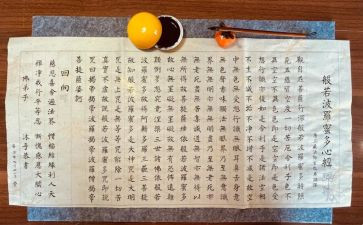 般若波羅蜜多心經
觀自在菩薩行深般若波羅蜜多時照
見五蘊皆空度一切苦厄舍利子色不
異空空不異色色即是空空即是色受
想行識亦復如是舍利子是諸法空相
不生不滅不垢不淨不增不減是故空
中無色無受想行識無眼耳鼻舌身意
無色聲香味觸法無眼界乃至無意識
界無無明亦無無明盡乃至無老死亦
無老死盡無苦集滅道無智亦無得以
無所得故菩提薩埵依般若波羅蜜多
故心無罣礙無罣礙故無有恐怖遠離
顛倒夢想究竟涅槃三世諸佛依般若
波羅蜜多故得阿耨多羅三藐三菩提
故知般若波羅蜜多是大神咒是大明
咒是無上咒是無等等咒能除一切苦
真實不虛故說般若波羅蜜多咒即說
咒曰揭諦揭諦波羅揭諦波羅僧揭諦
菩提薩婆訶
回向
慈悲喜捨遍法界 惜福結緣利人天
禪淨戒行平等忍 慚愧感恩大願心
佛弟子 沐手恭書